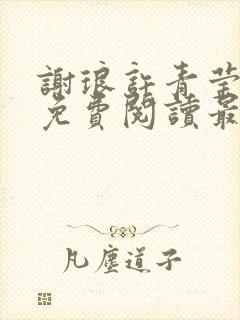 謝琅許青莹
免費閱讀最
凡塵道子